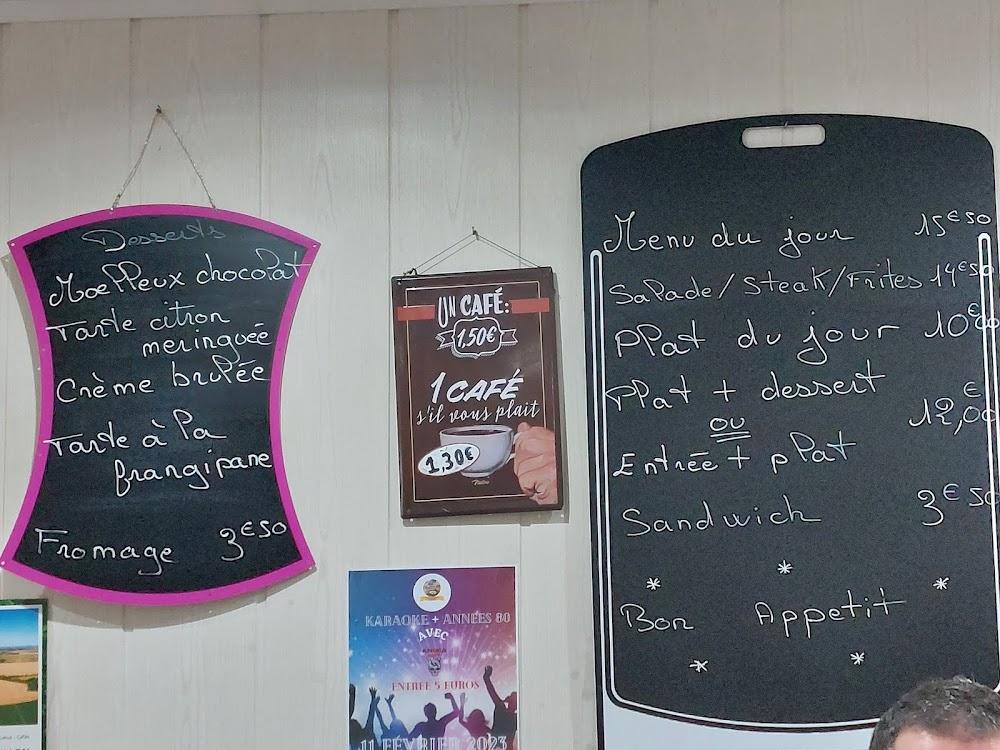 Desserts
Moelleux chocolat
Tarte citron
meringuée
Crème brulée
Tarte à la
frangipane
Fromage 3€50
UN CAFÉ:
1,50€
1 CAFÉ
s'il vous plait
1,30€
KARAOKE + ANNÉES 80
AVEC
ENTRÉE 5 EUROS
11 FÉVRIER 2023
Menu du jour 15€50
Salade/Steak/Frites 14€50
Plat du jour 10€00
Plat + dessert
ou
12,00€
Entrée + plat
Sandwich 3€50
Bon Appetit